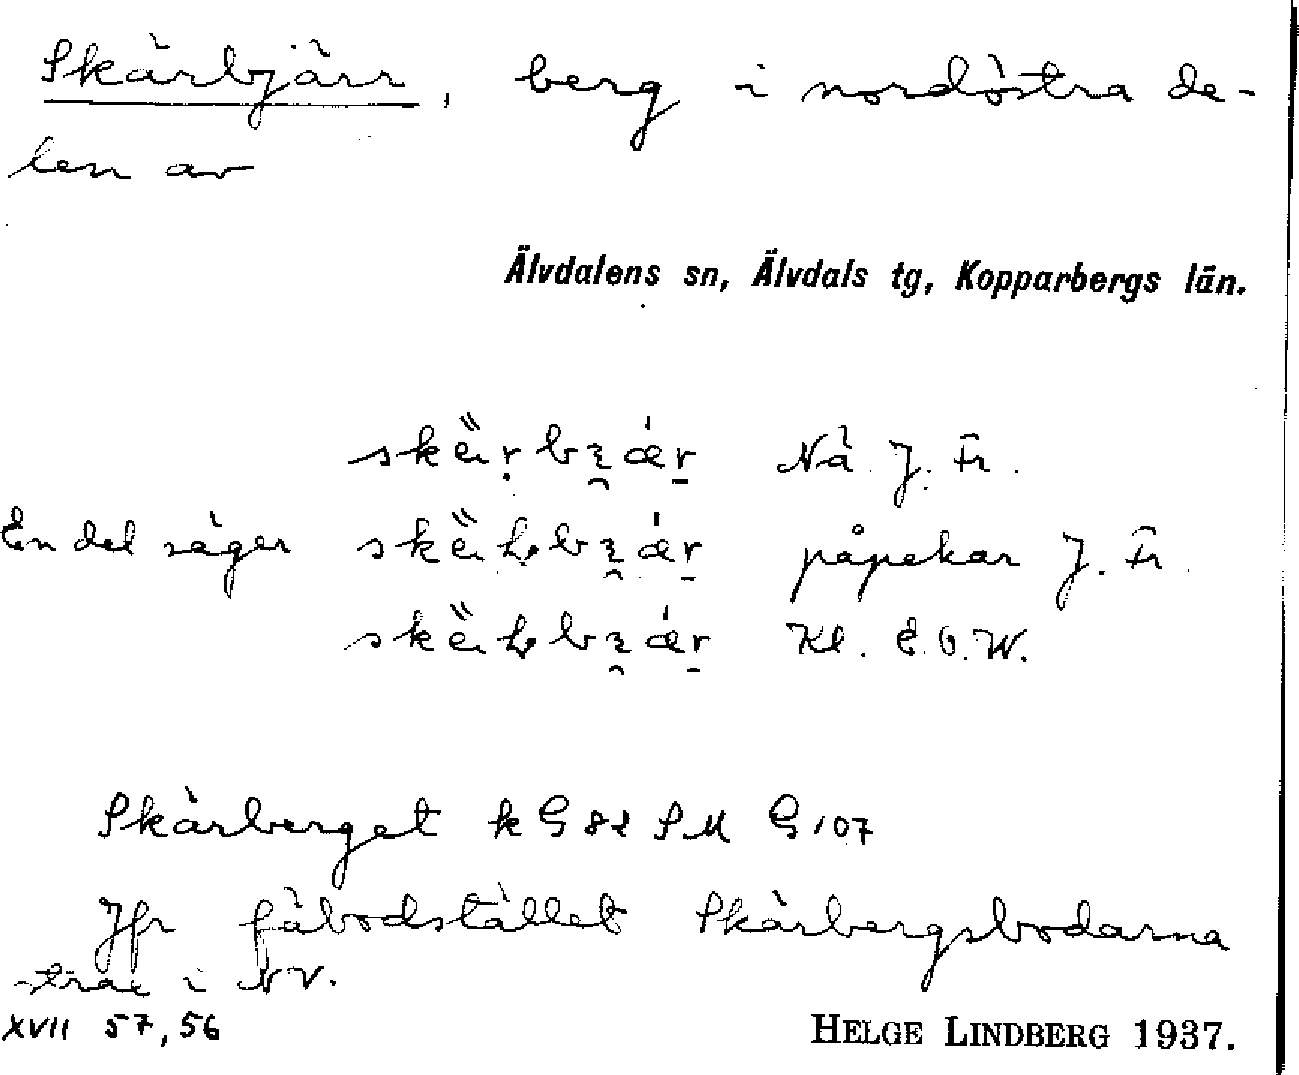 Skärbjärr, berg i nordöstra de-
len av
Älvdalens sn, Älvdals tg, Kopparbergs län.
Nä J. Fr.
En del säger påpekar J. Fr.
Kl. E. O. W.
Skärberget k G 82 SM G 107
Jfr fäbodstället Skärbergsbodarna
strax i NV.
XVII 57, 56
HELGE LINDBERG 1937.